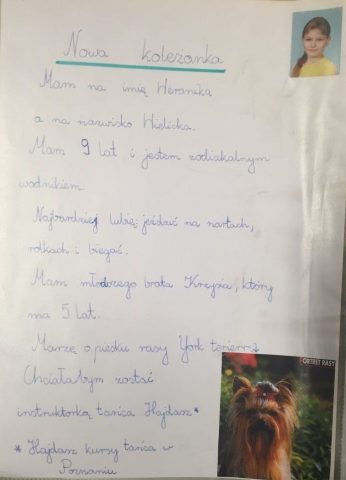 Nowa koleżanka
Mam na imię Weronika
a na nazwisko Wielicka.
Mam 9 lat i jestem zodiakalnym
wodnikiem
Najbardziej lubię jeździć na nartach,
rolkach i biegać.
Mam młodszego brata Krzysia, który
ma 5 lat.
Marzę o piesku rasy York terierr
Chciałabym zostać
instruktorką tańca Hajdasz*
* Hajdasz kursy tańca w
Poznaniu
PORTRET RASY